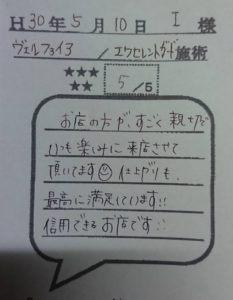 H30年5月10日 I 様
ヴェルファイア / エクセレントガード施術
★★★
★★
5/5
お店の方が、すごく親切で
いつも楽しみに来店させて
頂いてます☺ 仕上がりも、
最高に満足しています!!
信用できるお店です!!